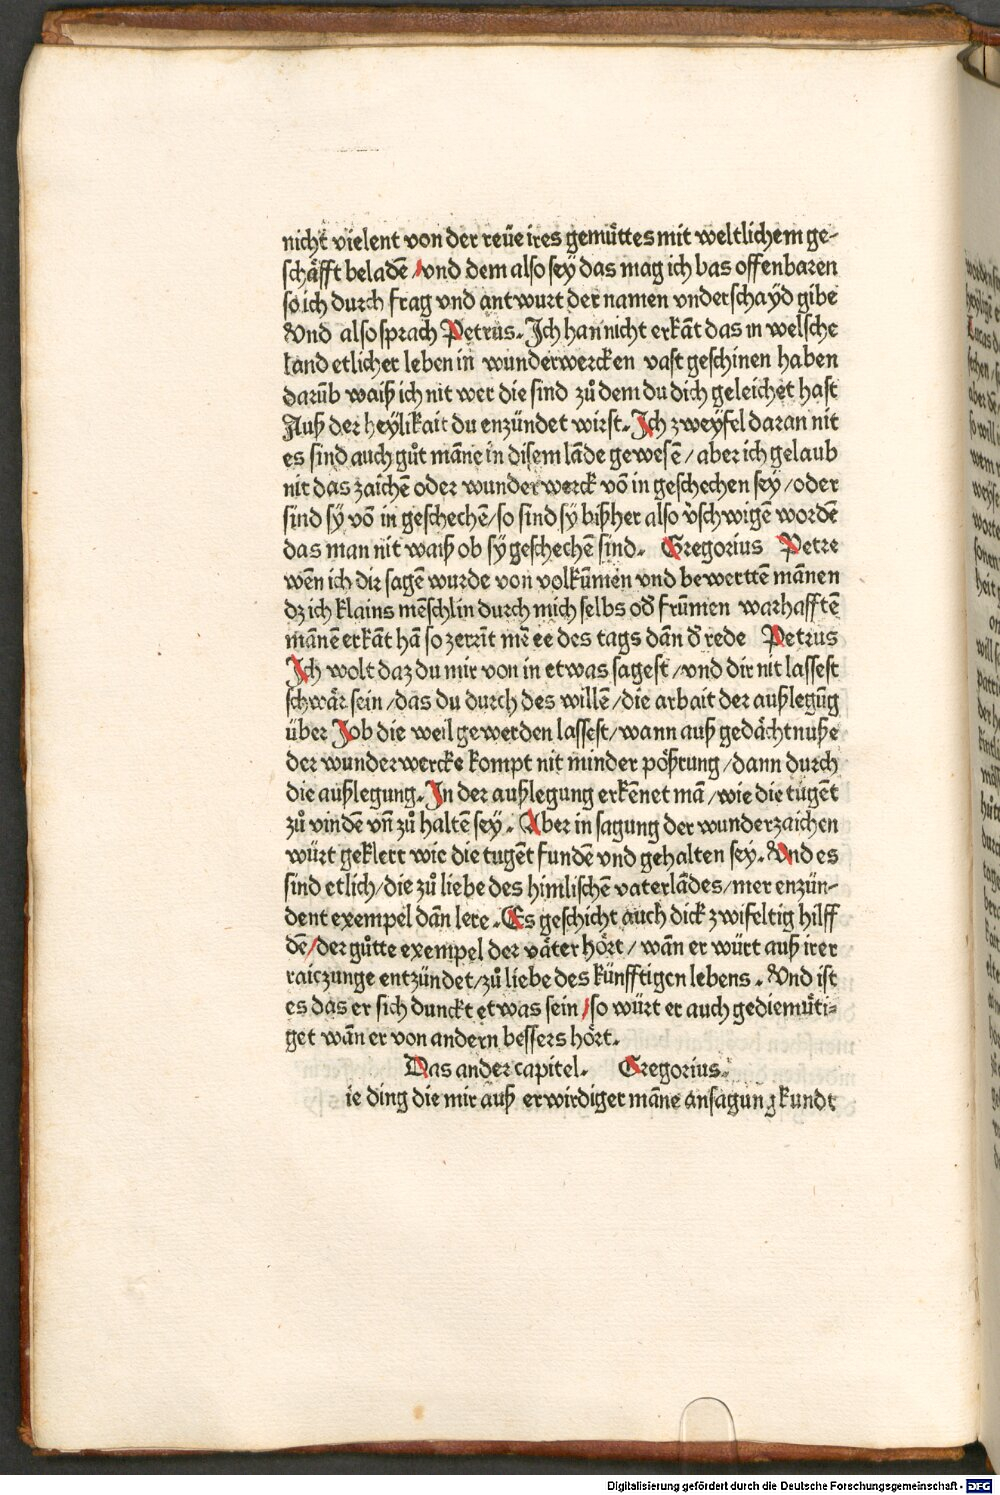 nicht vielent von der reüe ires gemüttes mit weltlichem ge-
schäfft beladē / vnd dem also sey das mag ich bas offenbaren
so ich durch frag vnd antwurt der namen vnderschayd gibe
Vnd also sprach Petrus. Ich han nicht erkāt das in welsche
land etlicher leben in wunderwercken vast geschinen haben
darūb waiß ich nit wer die sind zů dem du dich geleichet hast
Auß der heÿlikait du enzündet wirst. Ich zweÿfel daran nit
es sind auch gůt māne in disem lāde gewesē / aber ich gelaub
nit das zaichē oder wunderwerck vō in geschechen sey / oder
sind sÿ vō in geschechē / so sind sÿ bißher also v̄schwigē wordē
das man nit waiß ob sÿ geschechē sind. Gregorius Petre
wēn ich dir sagē wurde von volkūmen vnd bewerttē mānen
dz ich klains mēschlin durch mich selbs od̄ frūmen warhafftē
mānē erkāt hā so zerrīt mē ee des tags dān d̄ rede Petrus
Ich wolt daz du mir von in etwas sagest / vnd dir nit lassest
schwär sein / das du durch des willē / die arbait der außlegūg
über Job die weil gewerden lassest / wann auß gedächtnuße
der wunderwercke kompt nit minder pößrung / dann durch
die außlegung. In der außlegung erkēnet mā / wie die tugēt
zů vindē vn̄ zů haltē sey. Aber in sagung der wunderzaichen
würt geklert wie die tugēt fundē vnd gehalten sey. Vnd es
sind etlich / die zů liebe des himlischē vaterlādes / mer enzün-
dent exempel dān lere. Es geschicht auch dick zwifeltig hilff
dē / der gůtte exempel der väter hört / wān er würt auß irer
raiczunge entzündet / zů liebe des künfftigen lebens. Vnd ist
es das er sich dunckt etwas sein / so würt er auch gediemüti-
get wān er von andern bessers hört.
Das ander capitel. Gregorius.
ie ding die mir auß erwirdiger māne ansagung kundt
Digitalisierung gefördert durch die Deutsche Forschungsgemeinschaft - DFG